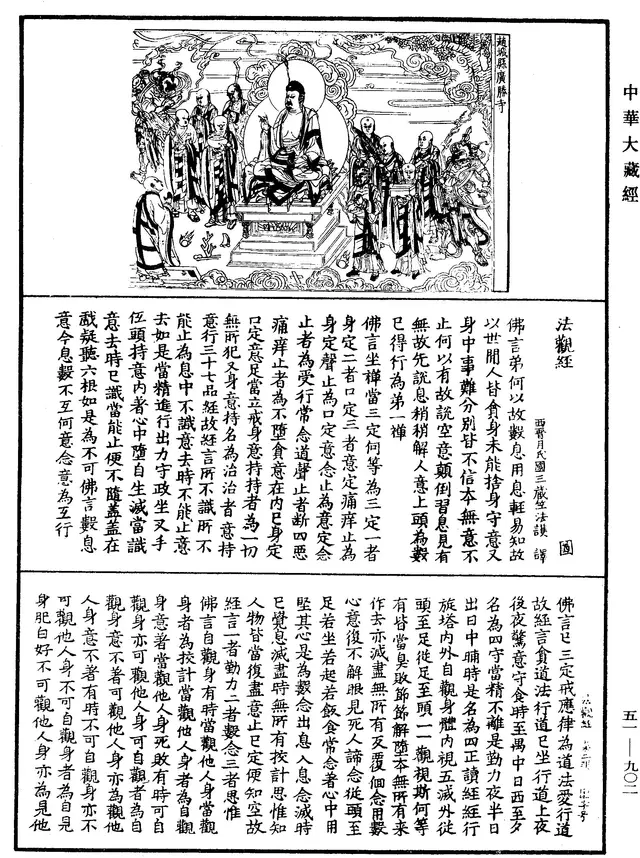 中華大藏經
趙城縣廣勝寺
法觀經
西晉月氏國三藏竺法護 譯
佛言弟何以故數息用息輕易知故
以世間人皆貪身未能捨身守意又
身中事難分別皆不信本無意不
止何以有故説空意顛倒習息見有
無故先説息稍稍解人意上頭為數
已得行為第一禪
佛言坐禪當三定何等為三定一者
身定二者口定三者意定痛痒止為
身定聲止為口定意念止為意定念
止者為受行常念道聲止者斷四惡
痛痒止者為不墮貪意在内已身定
口定意足當立戒身意持持者為一切
無所犯又身意持名為治治者意持
意行三十七品經故經言所不識所不
能止為息中不識意去時不能止意
去如是當精進行出力守政坐叉手
伍頭持意内著心中墮自生滅當識
意去時已識當能止便不隨蓋蓋在
戲疑聽六根如是為不可佛言數息
意令息數不互何意念意為互行
佛言已三定戒應律為道法愛行道
故經言貪道法行道已坐行道上夜
後夜驚意守食時至禺中日西至夕
名為四守當精不離是勤力夜半日
出日中晡時是名為四正讀經經行
旋塔内外自觀身體内視五滅外從
頭至足從足至頭一一觀視斯何等
有皆當臭敗節節解墮本無所有來
作去亦滅盡無所有友覆個念用數
心意復不解眼見死人諦念從頭至
足若坐若起若飯食常念著心中用
堅其心是為數念出息入息念滅時
已覺息滅盡時無所有按計思惟知
人物皆當復盡意止已定便知空故
經言一者勤力二者數念三者思惟
佛言自觀身有時當觀他人身當觀
身者為按計當觀他人身者為自
身意著當觀他人身死敗有時可自
觀身亦可觀他人身可自觀者為自
觀身意不著可觀他人身亦為觀他
人身意不著有時不可自觀身亦不
可觀他人身不可自觀身者為自見
身肥白好不可觀他人身亦為見他
五一—九〇二